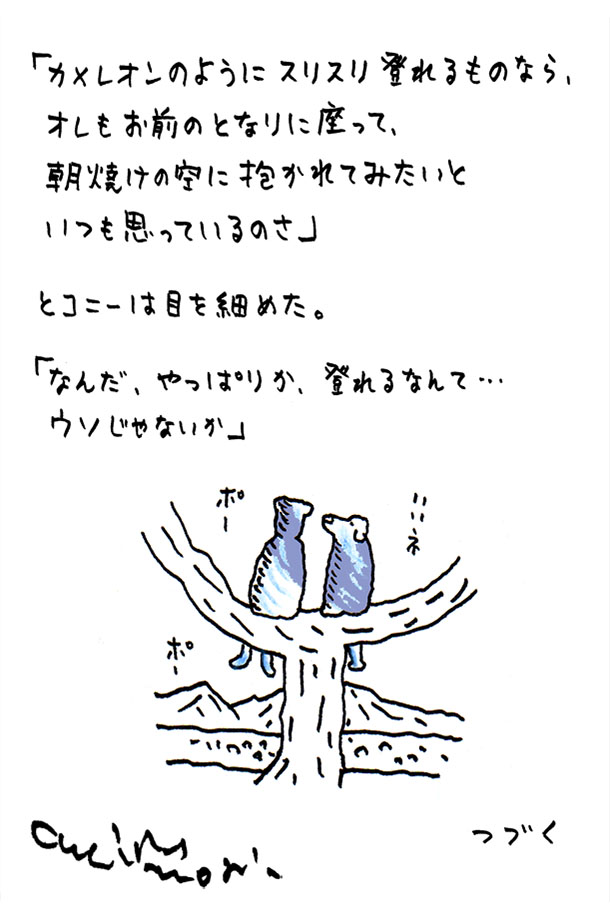 「カメレオンのようにスリスリ登れるものなら、
オレもお前のとなりに座って、
朝焼けの空に抱かれてみたいと
いつも思っているのさ」
とコニーは目を細めた。
「なんだ、やっぱりか、登れるなんて…
ウソじゃないか」
ポー
いいネ
ポー
つづく